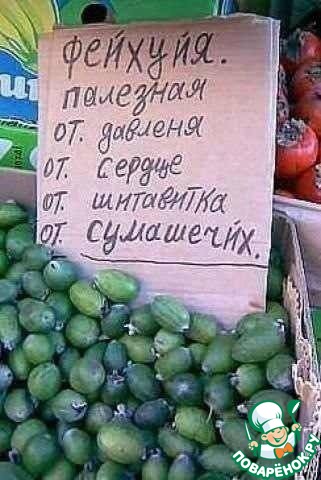 фейхуйя.
палезная
от. давленя
от. сердце
от. шитавитка
от. сумашечйх.
ПОВАРЁНОК.РУ